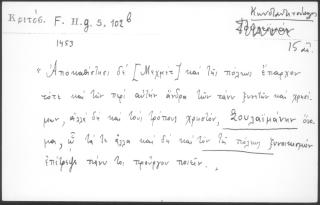 Κριτόβ. F. H. g. 5. 102 b
Κωνσταντινούπολις
15 αἰ.
1453
" Ἀποκαθίστησι δὲ [Μεχμὲτ] καὶ τῆς πόλεως ἔπαρχον
τότε καὶ τῶν περὶ αὐτὴν ἄνδρα τῶν πάνυ ξυνετῶν καὶ χρησί-
μων, ἀλλὰ δὲ καὶ τοὺς τρόπους χρηστόν, Σουλαϊμάνην ὄνο-
μα, ᾧ τά τε ἄλλα καὶ δὴ καὶ τὸν τῆς πόλεως ξυνοικισμὸν
ἐπέτρεψε πάνυ τοι προὔργου ποιεῖν.